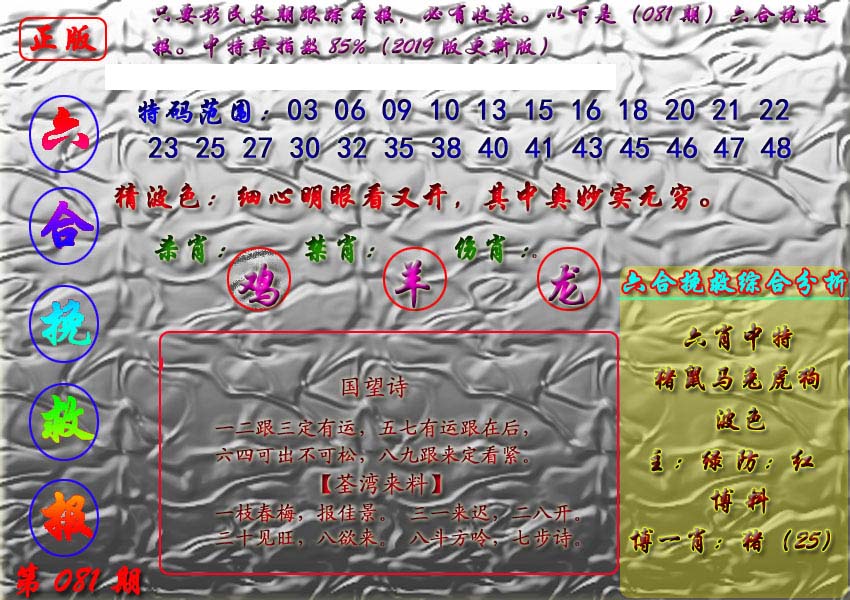 正版
只要彩民长期跟踪本报，必有收获。以下是（081期）六合挽救
报。中特率指数85%（2019版更新版）
六合挽救报
第081期
特码范围：03 06 09 10 13 15 16 18 20 21 22
23 25 27 30 32 35 38 40 41 43 45 46 47 48
猜波色：细心明眼看又开，其中奥妙实无穷。
杀肖：鸡 禁肖：羊 伤肖：龙
国望诗
一二跟三定有运，五七有运跟在后，
六四可出不可松，八九跟来定看紧。
【荃湾来料】
一枝春梅，报佳景。 三一来迟，二八开。
三十见旺，八欲来。 八斗方吟，七步诗。
六合挽救综合分析
六肖中特
猪鼠马兔虎狗
波色
主：绿 防：红
博料
博一肖：猪（25）